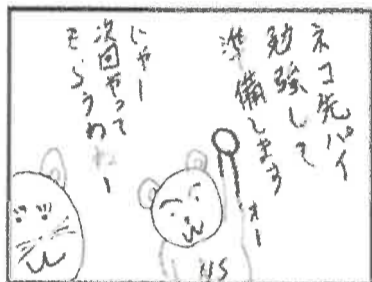 ネコ先パイ
勉強して
準備します
オー
にゃー
次回やって
もらうわ